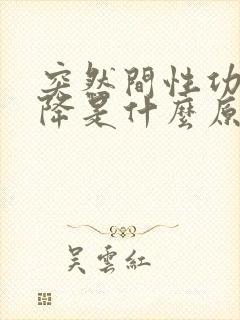 突然間性功
降是什麼原
吳雲紅